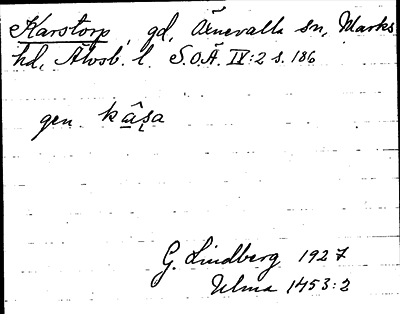 Karstorp, gd, Äxnevalla sn, Marks
hd, Älvsb. l. S.O.Ä. IV:2 s. 186
gen kâṣa
G. Lindberg 1927
Ulma 1453:2